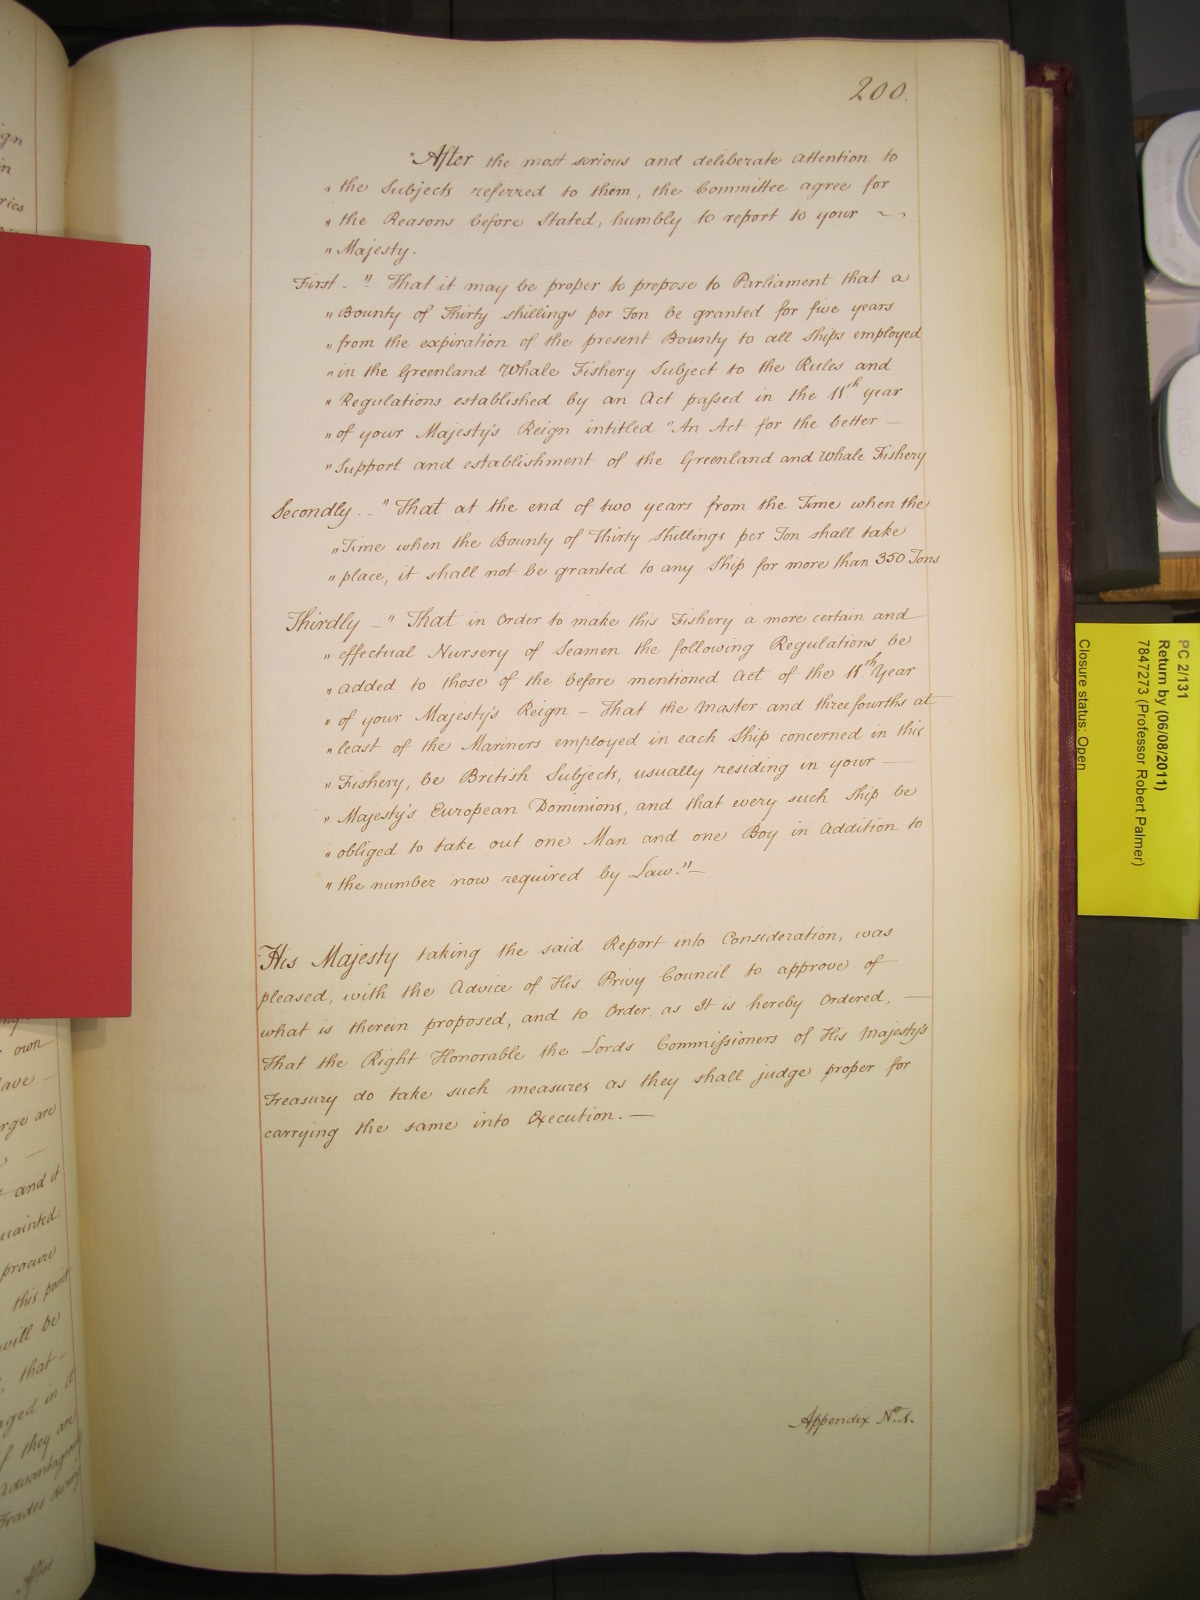 200.
"After the most serious and deliberate attention to
" the Subjects referred to them, the Committee agree for
" the Reasons before Stated, humbly to report to your ~
" Majesty.
First - " That it may be proper to propose to Parliament that a
" Bounty of Thirty shillings per Ton be granted for five years
" from the expiration of the present Bounty to all Ships employed
" in the Greenland Whale Fishery Subject to the Rules and
" Regulations established by an Act passed in the 11th year
" of your Majesty's Reign intitled "An Act for the better —
" Support and establishment of the Greenland and Whale Fishery
Secondly - - " That at the end of two years from the Time when the
" Time when the Bounty of Thirty Shillings per Ton shall take
" place, it shall not be granted to any Ship for more than 350 Tons
Thirdly - " That in Order to make this Fishery a more certain and
" effectual Nursery of Seamen the following Regulations be
" added to those of the before mentioned Act of the 11th Year
" of your Majesty's Reign - That the Master and three fourths at
" least of the Mariners employed in each Ship concerned in this
" Fishery, be British Subjects, usually residing in your —
" Majesty's European Dominions, and that every such Ship be
" obliged to take out one Man and one Boy in Addition to
" the number now required by Law." —
His Majesty taking the said Report into Consideration, was
pleased, with the Advice of His Privy Council to approve of
what is therein proposed, and to Order, as It is hereby Ordered, —
That the Right Honorable the Lords Commissioners of His Majesty's
Treasury do take such measures as they shall judge proper for
carrying the same into Execution. —
Appendix No. 1.
PC 2/131
Return by (06/08/2011)
7847273 (Professor Robert Palmer)
Closure status: Open
ign
in
ries
own
have —
rge are
and it
uainted
procure
this point
will be
that —
aged in it
if they are
Advantageous
Trades during
After